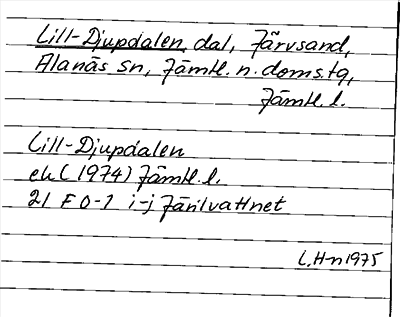 Lill-Djupdalen dal, Järvsand,
Alanäs sn, Jämtl. n. doms.tg,
Jämtl. l.
Lill-Djupdalen
ek (1974) Jämtl. l.
21 F 0-1 i-j Järilvattnet
L.H-n 1975